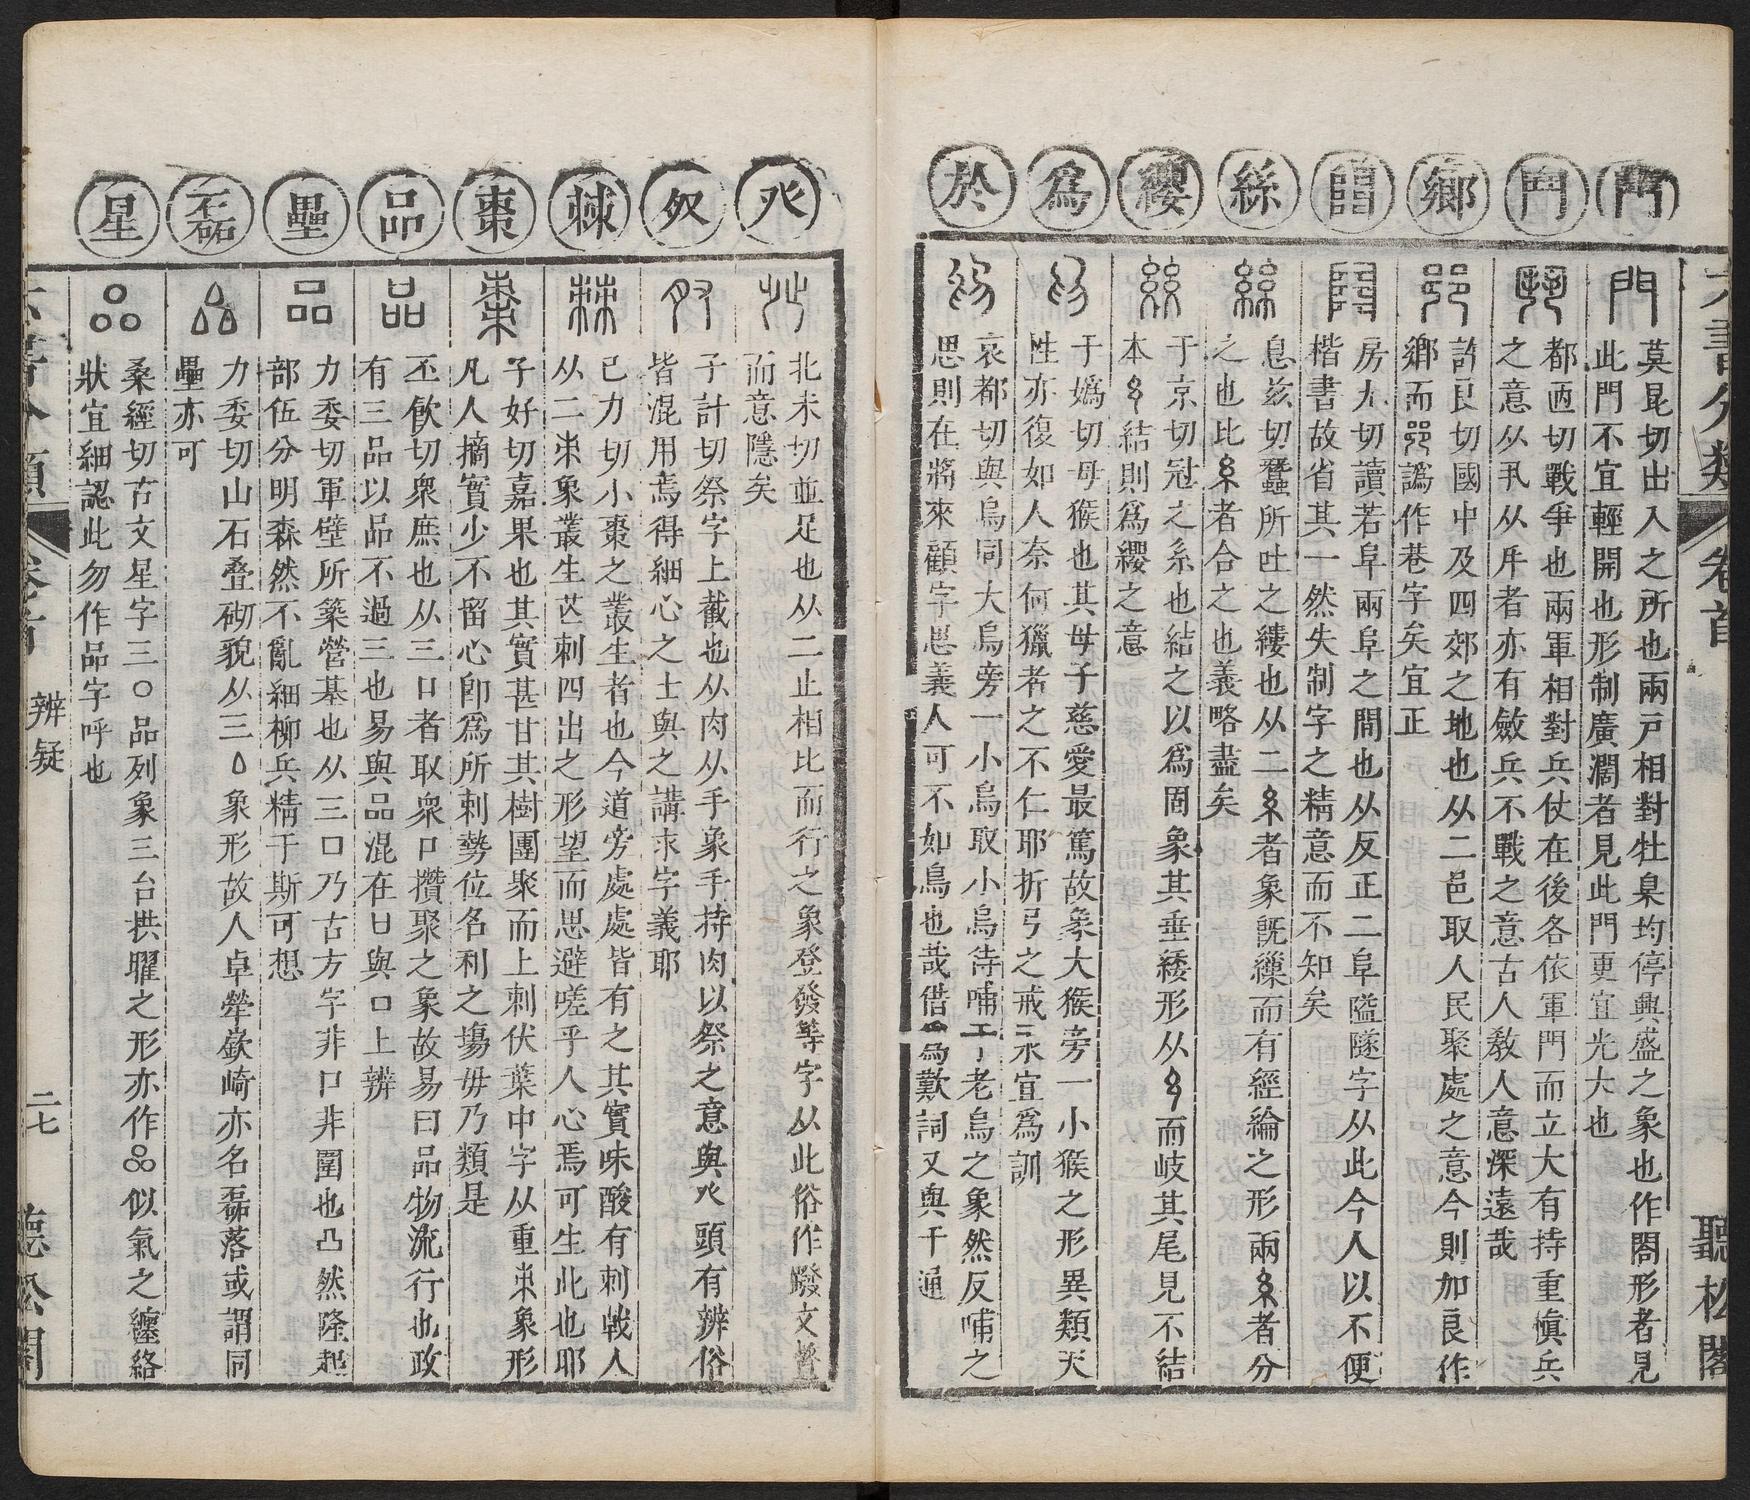 六書分類
卷首
聽松閣
門
莫昆切出入之所也兩戸相對牡臬均停興盛之象也作閤形者見
此門不宜輕開也形制廣濶者見此門更宜光大也
鬥
都逥切戰爭也兩軍相對兵仗在後各依軍門而立大有持重愼兵
之意从丮从厈者亦有斂兵不戰之意古人敎人意深遠哉
鄉
許良切國中及四郊之地也从二邑取人民聚處之意今則加良作
鄉而𨛜譌作巷字矣宜正
房九切讀若阜兩阜之間也从反正二阜隘隧字从此今人以不便
楷書故省其一然失制字之精意而不知矣
絲
息兹切蠶所吐之縷也从二糸者象既繅而有經綸之形兩糸者分
之也比糸者合之也義略盡矣
纓
于京切冠之系也結之以爲固象其垂緌形从而岐其尾見不結
本結則爲纓之意
爲
于嬀切母猴也其母子慈愛最篤故象大猴旁一小猴之形異類天
性亦復如人奈何獵者之不仁耶折弓之戒永宜爲訓
於
哀都切與烏同大烏旁一小烏取小烏待哺于老烏之象然反哺之
思則在將來顧字思義人可不如鳥也哉借爲歎詞又與于通
癶
北未切並足也从二止相比而行之象登發等字从此俗作撥文聱
而意隱矣
子計切祭字上截也从肉从手象手持肉以祭之意與癶頭有辨俗
皆混用焉得細心之士與之講求字義耶
棘
已力切小棗之叢生者也今道旁處處皆有之其實味酸有刺戟人
从二朿象叢生芒刺四出之形望而思避嗟乎人心焉可生此也耶
棗
子好切嘉果也其實甚甘其樹團聚而上刺伏葉中字从重朿象形
凡人摘實少不留心卽爲所刺勢位名利之塲毋乃類是
品
丕飮切衆庶也从三口者取衆口攢聚之象故易曰品物流行也政
有三品以品不過三也易與品混在口與口上辨
壘
力委切軍壁所築營基也从三口乃古方字非口非圍也凸然隆起
部伍分明森然不亂細柳兵精于斯可想
磊
力委切山石叠砌貌从三象形故人卓犖嶔崎亦名磊落或謂同
壘亦可
星
桑經切古文星字三〇品列象三台拱曜之形亦作似氣之纏絡
狀宜細認此勿作品字呼也
六書分類
卷首
辨疑
二七
聽松閣